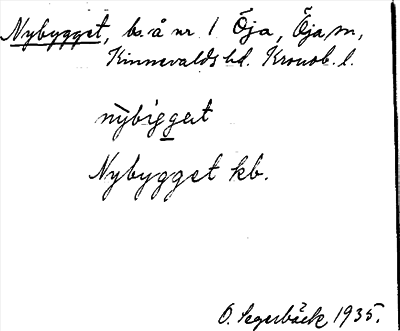 Nybygget, bs. å nr 1 Öja, Öja sn,
Kinnevalds hd. Kronob. l.
nỳbiggət
Nybygget kb.
O. Segerbäck 1935.